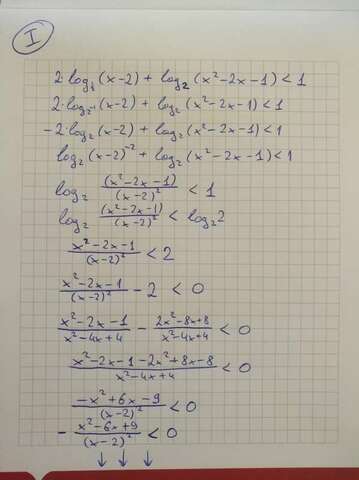 I
2·log₁(x-2) + log₂(x²-2x-1) < 1
2·log₂⁻¹(x-2) + log₂(x²-2x-1) < 1
-2·log₂(x-2) + log₂(x²-2x-1) < 1
log₂(x-2)⁻² + log₂(x²-2x-1) < 1
log₂ (x²-2x-1)/(x-2)² < 1
log₂ (x²-2x-1)/(x-2)² < log₂2
x²-2x-1/(x-2)² < 2
x²-2x-1/(x-2)² - 2 < 0
x²-2x-1/x²-4x+4 - 2x²-8x+8/x²-4x+4 < 0
x²-2x-1-2x²+8x-8/x²-4x+4 < 0
-x²+6x-9/(x-2)² < 0
- x²-6x+9/(x-2)² < 0
↓ ↓ ↓